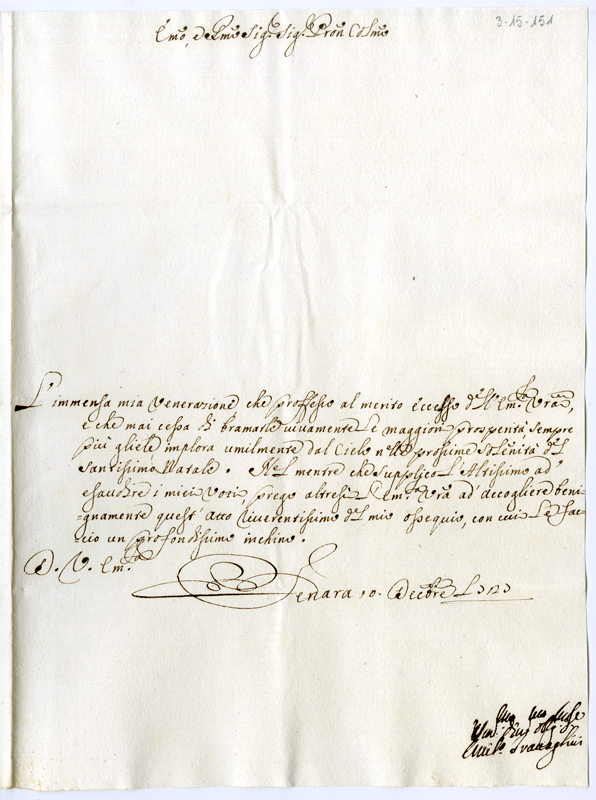 3-15-151
Emo, e Rmo Sigr. Sigr. Pron Colmo
L'immensa mia venerazione che professo al merito eccelso dell'Emza Vra,
e che mai cessa di bramarle vivamente le maggiori prosperità, sempre
più gliele implora umilmente dal Cielo nelle prossime solennità del
Santissimo Natale. Nel mentre che supplico l'Altissimo ad
esaudire i miei voti, prego altresì l'Emza Vra ad accogliere beni-
=gnamente quest'atto riverentissimo del mio ossequio, con cui le fac-
=cio un profondissimo inchino.
D. V. Emza
Ferrara 10. Decbre